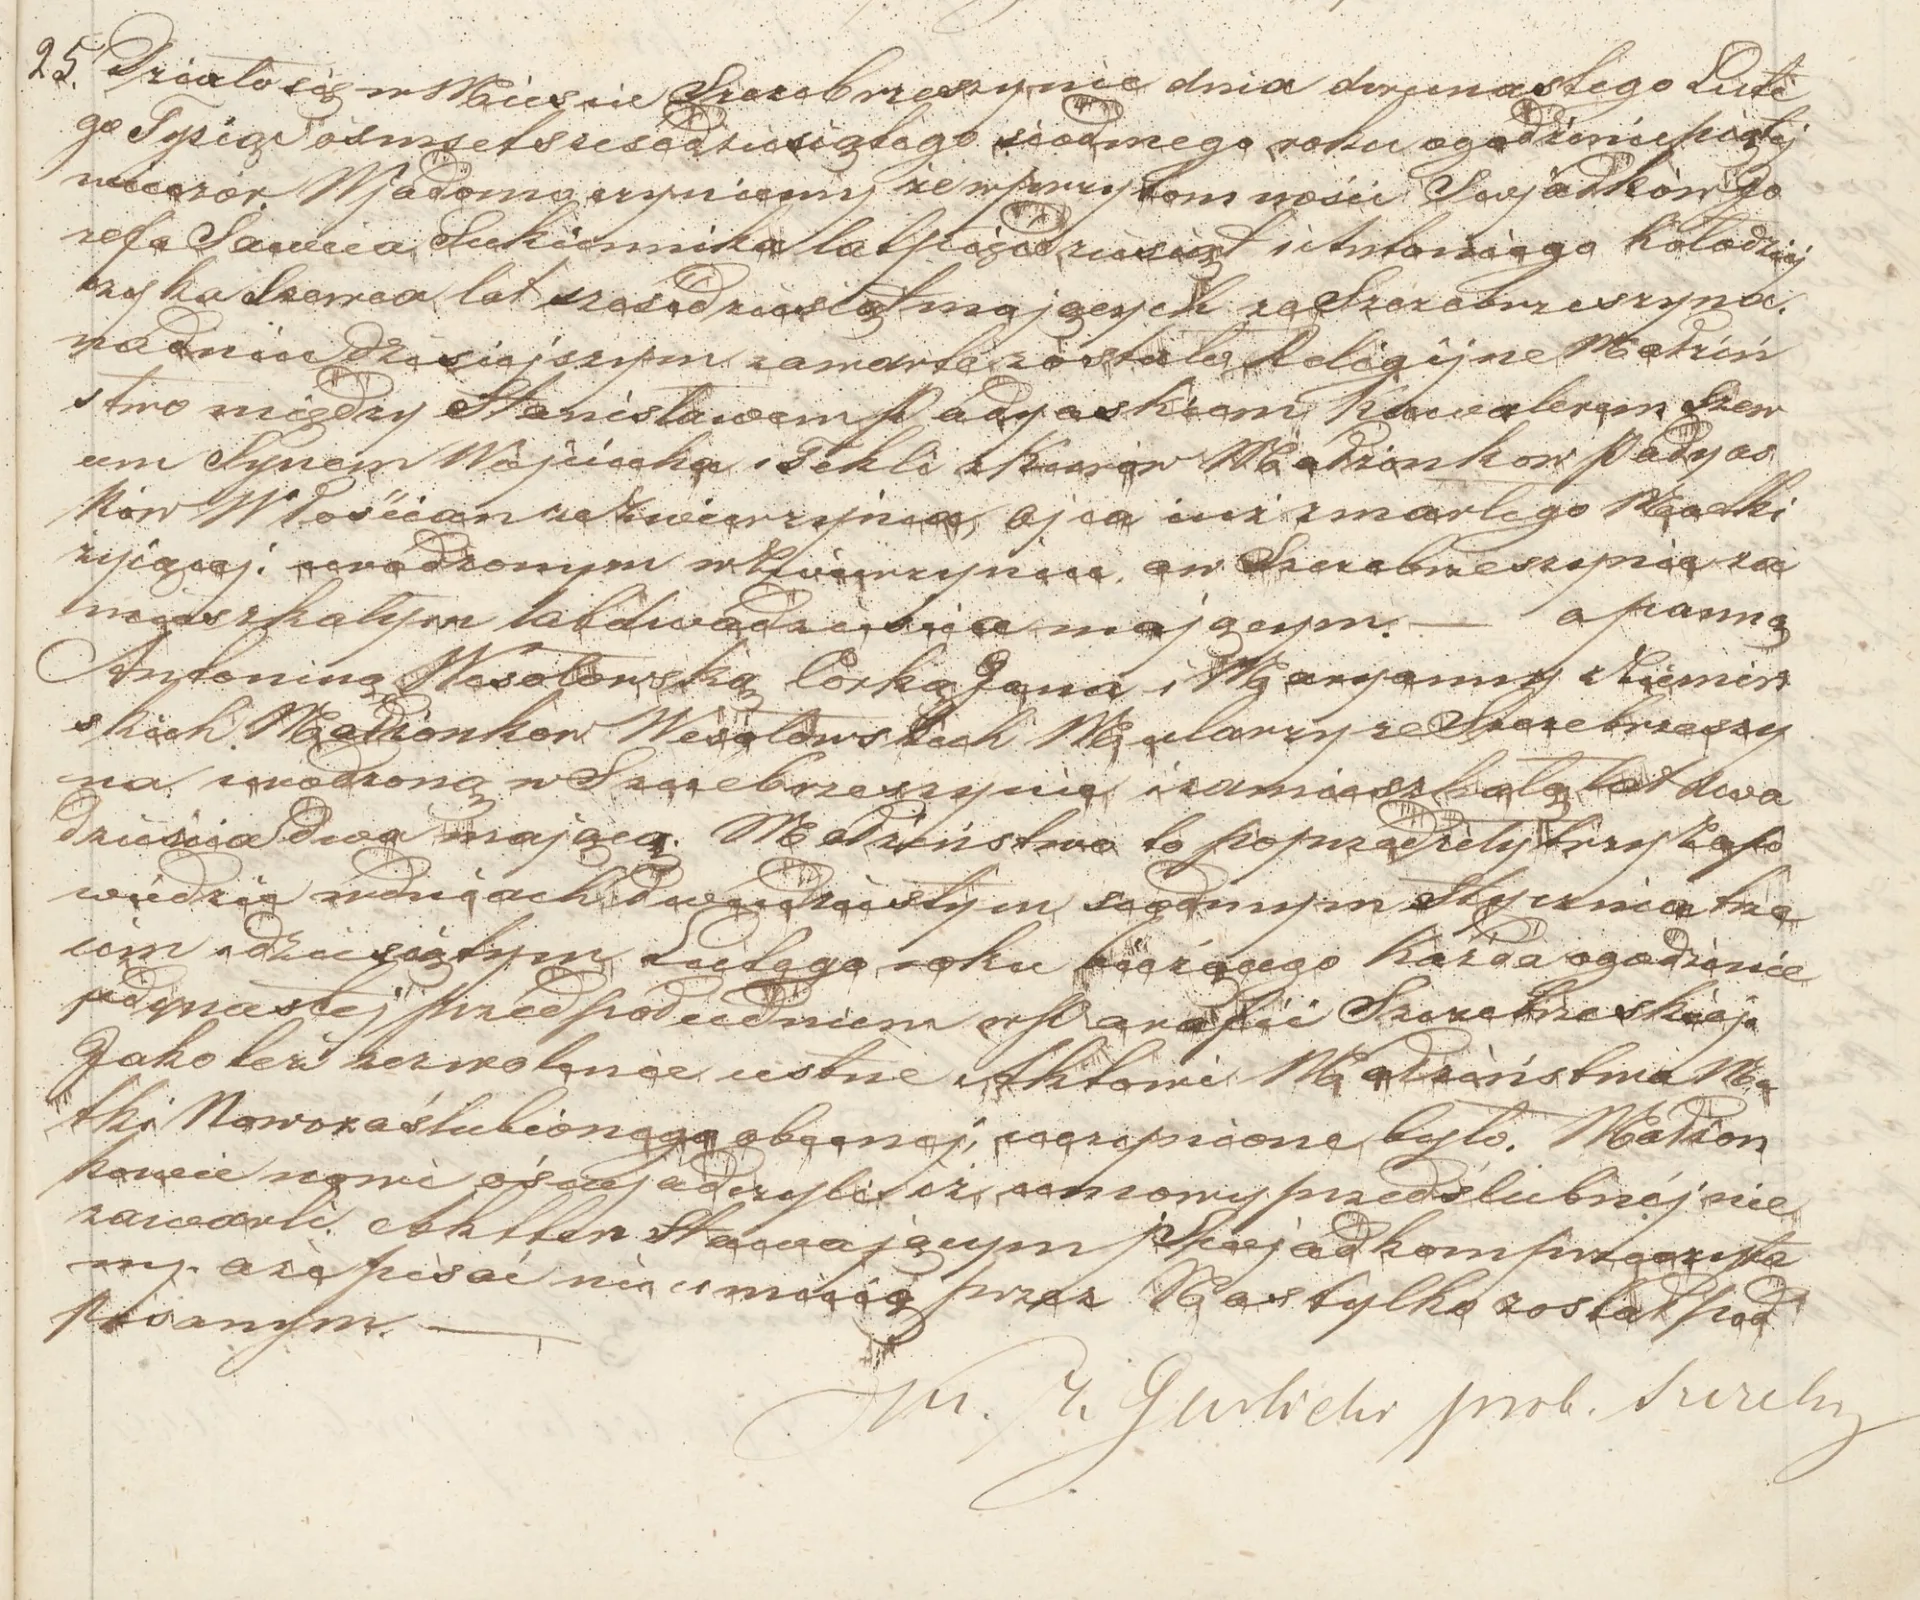 25. Działo się w Mieście Szczebrzeszynie dnia dwunastego Lute
go Tysiąc osmset szesćdziesiątego siodmego roku o godzinie piątej
wieczor. Wjadomo czyniemy że w przytomności Swjadków Jo
zefa Sawica Sukiennika lat pięćdziesiąt i Antoniego Kołodziej
czyka Szewca lat szesćdziesiąt mających ze Szczebrzeszyna.
na dniu dzisiejszym zawarte zostało Religijne Małżeń
stwo między Stanisławem Padyaskiem Kawalerem Szew
cem Synem Wojciecha i Tekli z Małżonkow Padyas
kow Włościan ze Zwierzyńca, ojca iuż zmarłego Matki
żyiącej. urodzonym w Zwierzyńcu, a w Szczebrzeszynie za
mieszkałym lat dwadzieścia mającym. — a panną
Antoniną Wesołowską Córką Jana i Maryanny z Ziemin
skich Małżonkow Wesołowskich Mularzy ze Szczebrzeszy
na urodzoną w Szczebrzeszynie i zamieszkałą lat dwa
dzieścia dwa mającą. Małżeństwo to poprzedziły trzy Zapo
wiedzie w dniach dwudziestym siodmym Stycznia trze
cim i dziesiątym Lutego roku bieżącego każda o godzinie
jedynastej przed południem w Parafii Szczebrzeskiej
Jako też zezwolenie ustne Aktowi Małżeństwa Ma
tki Nowozaślubionego obecnej, uczynione było. Małżon
kowie nowi oświadczyli iż umowy przedślubnéj nie
zawarli. Akt ten Stawającym i Swjadkom przeczyta
ny. a że pisać nie umieią przez Nas tylko został pod
pisanym. —
prob. Szczebrz